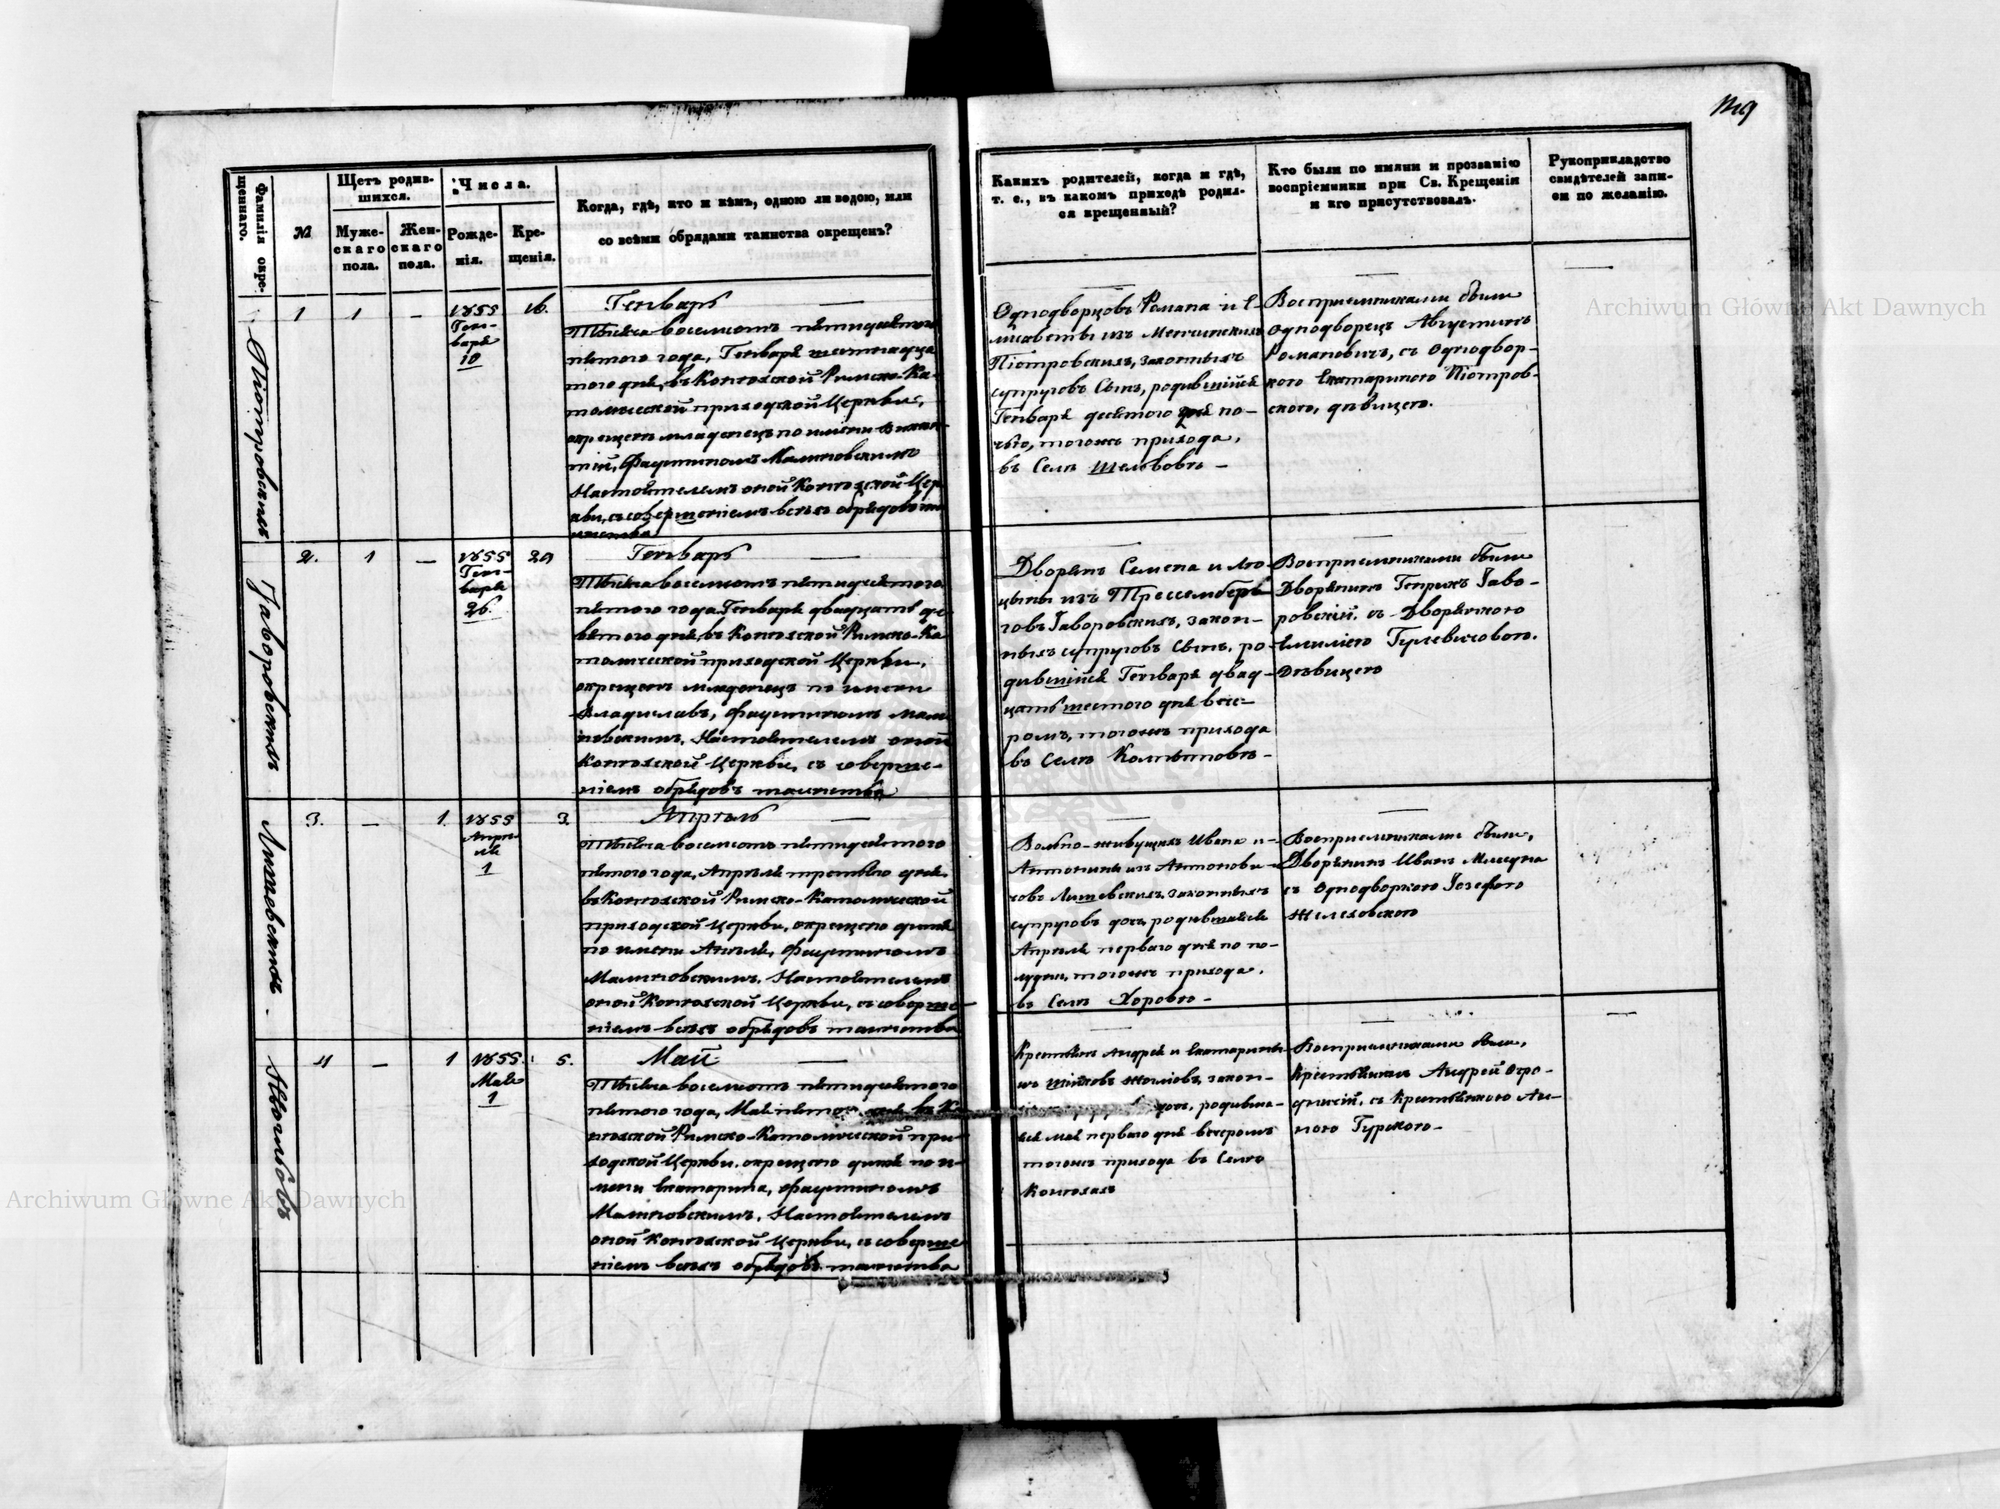 149
Фамилія окре-
щеннаго.
№
Щетъ родив-
шихся.
Муже-
скаго
пола.
Жен-
скаго
пола.
Числа.
Рожде-
нія.
Кре-
щенія.
Когда, гдѣ, кто и кѣмъ, одною ли водою, или
со всѣми обрядами таинства окрещенъ?
Какихъ родителей, когда и гдѣ,
т. е., въ какомъ приходѣ родил-
ся крещенный?
Кто были по имяни и прозванію
воспріемники при Св. Крещеніи
и кто присутствовалъ.
Рукоприкладство
свидѣтелей запи-
си по желанію.
Піотровскій
1 1 - 1855 16.
Ген-
варя
10
Генварь
Тысяча восемсотъ пятидесятого
пятого года, Генваря шестнадца
того дня, въ Римско-Ка-
толической приходской Церкви,
окрещенъ младенецъ по имени
Фаустиномъ Малиновскимъ
Настоятелемъ оной Цер
кви, съ совершеніемъ всѣхъ обрядовъ та
инства
Однодворцовъ Романа и Е-
лисаветы изъ
Піотровскихъ, законныхъ
супруговъ сынъ, родившійся
Генваря десятого дня по-
тогожъ прихода,
въ Селѣ Шельвовѣ -
Воспріемниками были
Однодворецъ Августинъ
Романовичъ, съ Однодвор-
кою Екатериною Піотров-
скою, дѣвицею.
Яворовскій
2. 1 - 1855 29
Ген-
варя
26.
Генварь
Тысяча восемсотъ пятидесятого
пятого года Генваря двадцать де-
вятого дня, въ Римско-Ка
толической приходской Церкви,
окрещенъ младенецъ по имени
Владиславъ, Фаустиномъ Мали
новскимъ, Настоятелемъ оной
Церкви, съ соверше-
ніемъ обрядовъ таинства
Дворянъ Семена и Лю-
цыны изъ
Яворовскихъ, закон-
ныхъ супруговъ сынъ, ро
дившійся Генваря двад-
цать шестого дня вече-
ромъ, тогожъ прихода
въ Селѣ
Воспріемниками были
Дворянинъ Генрихъ Яво-
ровскій, съ Дворянкою
Емиліею Гулевичовою.
Дѣвицею
3. - 1. 1855 3.
Апрѣ-
ля
1
Апрѣль
Тысяча восемсотъ пятидесятого
пятого года, Апрѣля третьяго дня,
въ Римско-Католической
приходской Церкви, окрещено дитя
по имени Фаустиномъ
Малиновскимъ, Настоятелемъ
оной Церкви, съ соверше
ніемъ всѣхъ обрядовъ таинства
Вольно-живущихъ Ивана и
Антонины изъ Антонови-
човъ законныхъ
супруговъ дочь, родившаяся
Апрѣля перваго дня по по-
лудни, тогожъ прихода,
въ Селѣ Хоровѣ -
Воспріемниками были,
Дворянинъ Иванъ
съ Однодворкою Іозефою
Желеховскою
4 - 1 1855. 5.
Мая
1
Май
Тысяча восемсотъ пятидесятого
пятого года, Мая пятого дня въ
Римско-Католической при-
ходской Церкви, окрещено дитя по и-
мени Екатерина, Фаустиномъ
Малиновскимъ, Настоятелемъ
оной Церкви, съ соверше
ніемъ всѣхъ обрядовъ таинства
Крестьянъ Андрея и Екатерины
закон-
дочь, родивша-
яся Мая перваго дня вечеромъ
тогожъ прихода въ Селѣ
Воспріемниками были,
Крестьянинъ Андрей Огро-
дникъ, съ Крестьянкою Ан-
ною Гурскою -
Archiwum Główne Akt Dawnych
Archiwum Główne Akt Dawnych